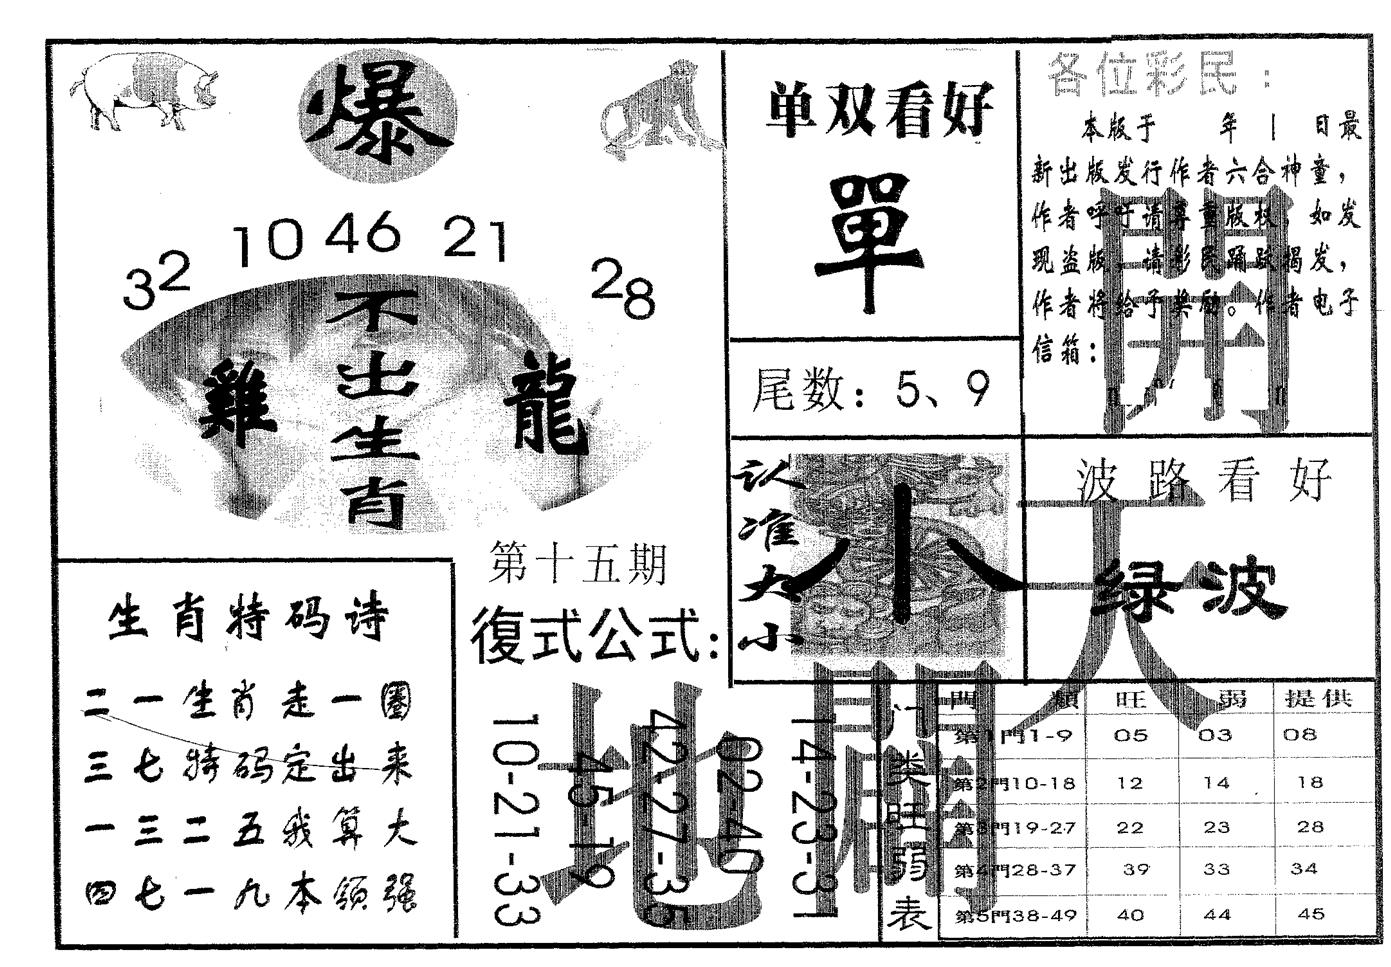 爆
32 10 46 21 28
不出生肖
雞
龍
第十五期
生肖特码诗
二一生肖走一圈
三七特码定出来
一三二五我算大
四七一九本领强
復式公式:
10-21-33
45-19
42-27-35
02-40
14-23-31
单双看好
單
尾数：5、9
认准大小
小
各位彩民：
本版于 年 日最
新出版发行作者六合神童，
作者呼吁请尊重版权，如发
现盗版，请彩民踊跃揭发，
作者将给予奖励。作者电子
信箱：
波路看好
绿波
天
地
開
開
门类旺弱表
門 類 旺 弱 提供
第1門1-9 05 03 08
第2門10-18 12 14 18
第3門19-27 22 23 28
第4門28-37 39 33 34
第5門38-49 40 44 45